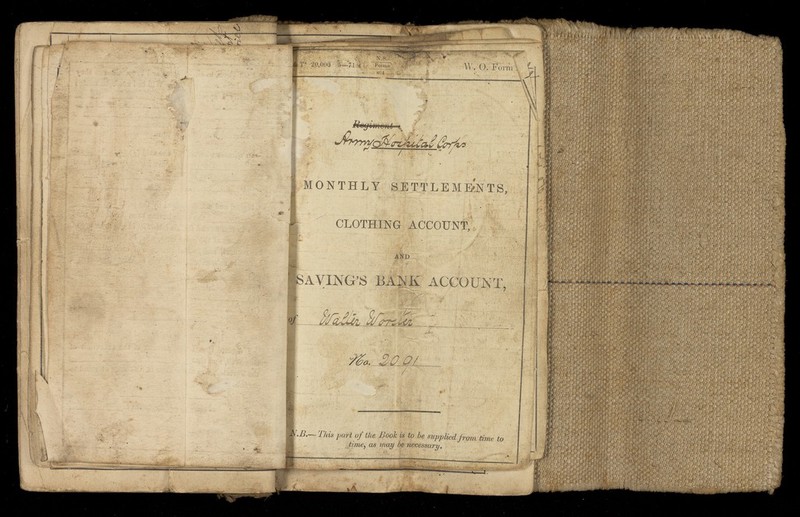 20,000
W. O. Form
Regiment
Army Hospital Corps
MONTHLY SETTLEMENTS,
CLOTHING ACCOUNT,
AND
SAVING'S BANK ACCOUNT,
of Walter Worster
No. 2001
N.B.— This part of the Book is to be supplied from time to
time, as may be necessary.